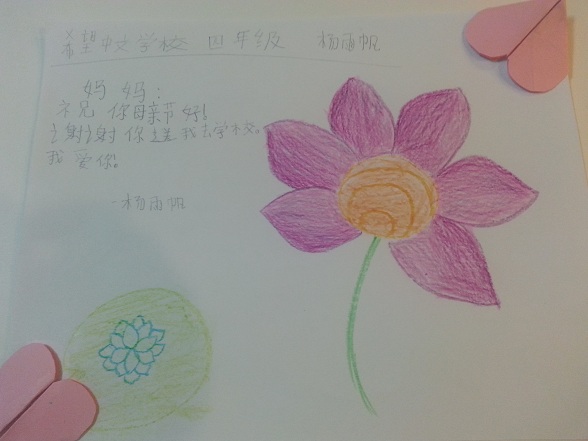 希望中文学校 四年级 杨雨帆
妈妈:
祝你母亲节好!
谢谢你送我去学校。
我爱你。
-杨雨帆